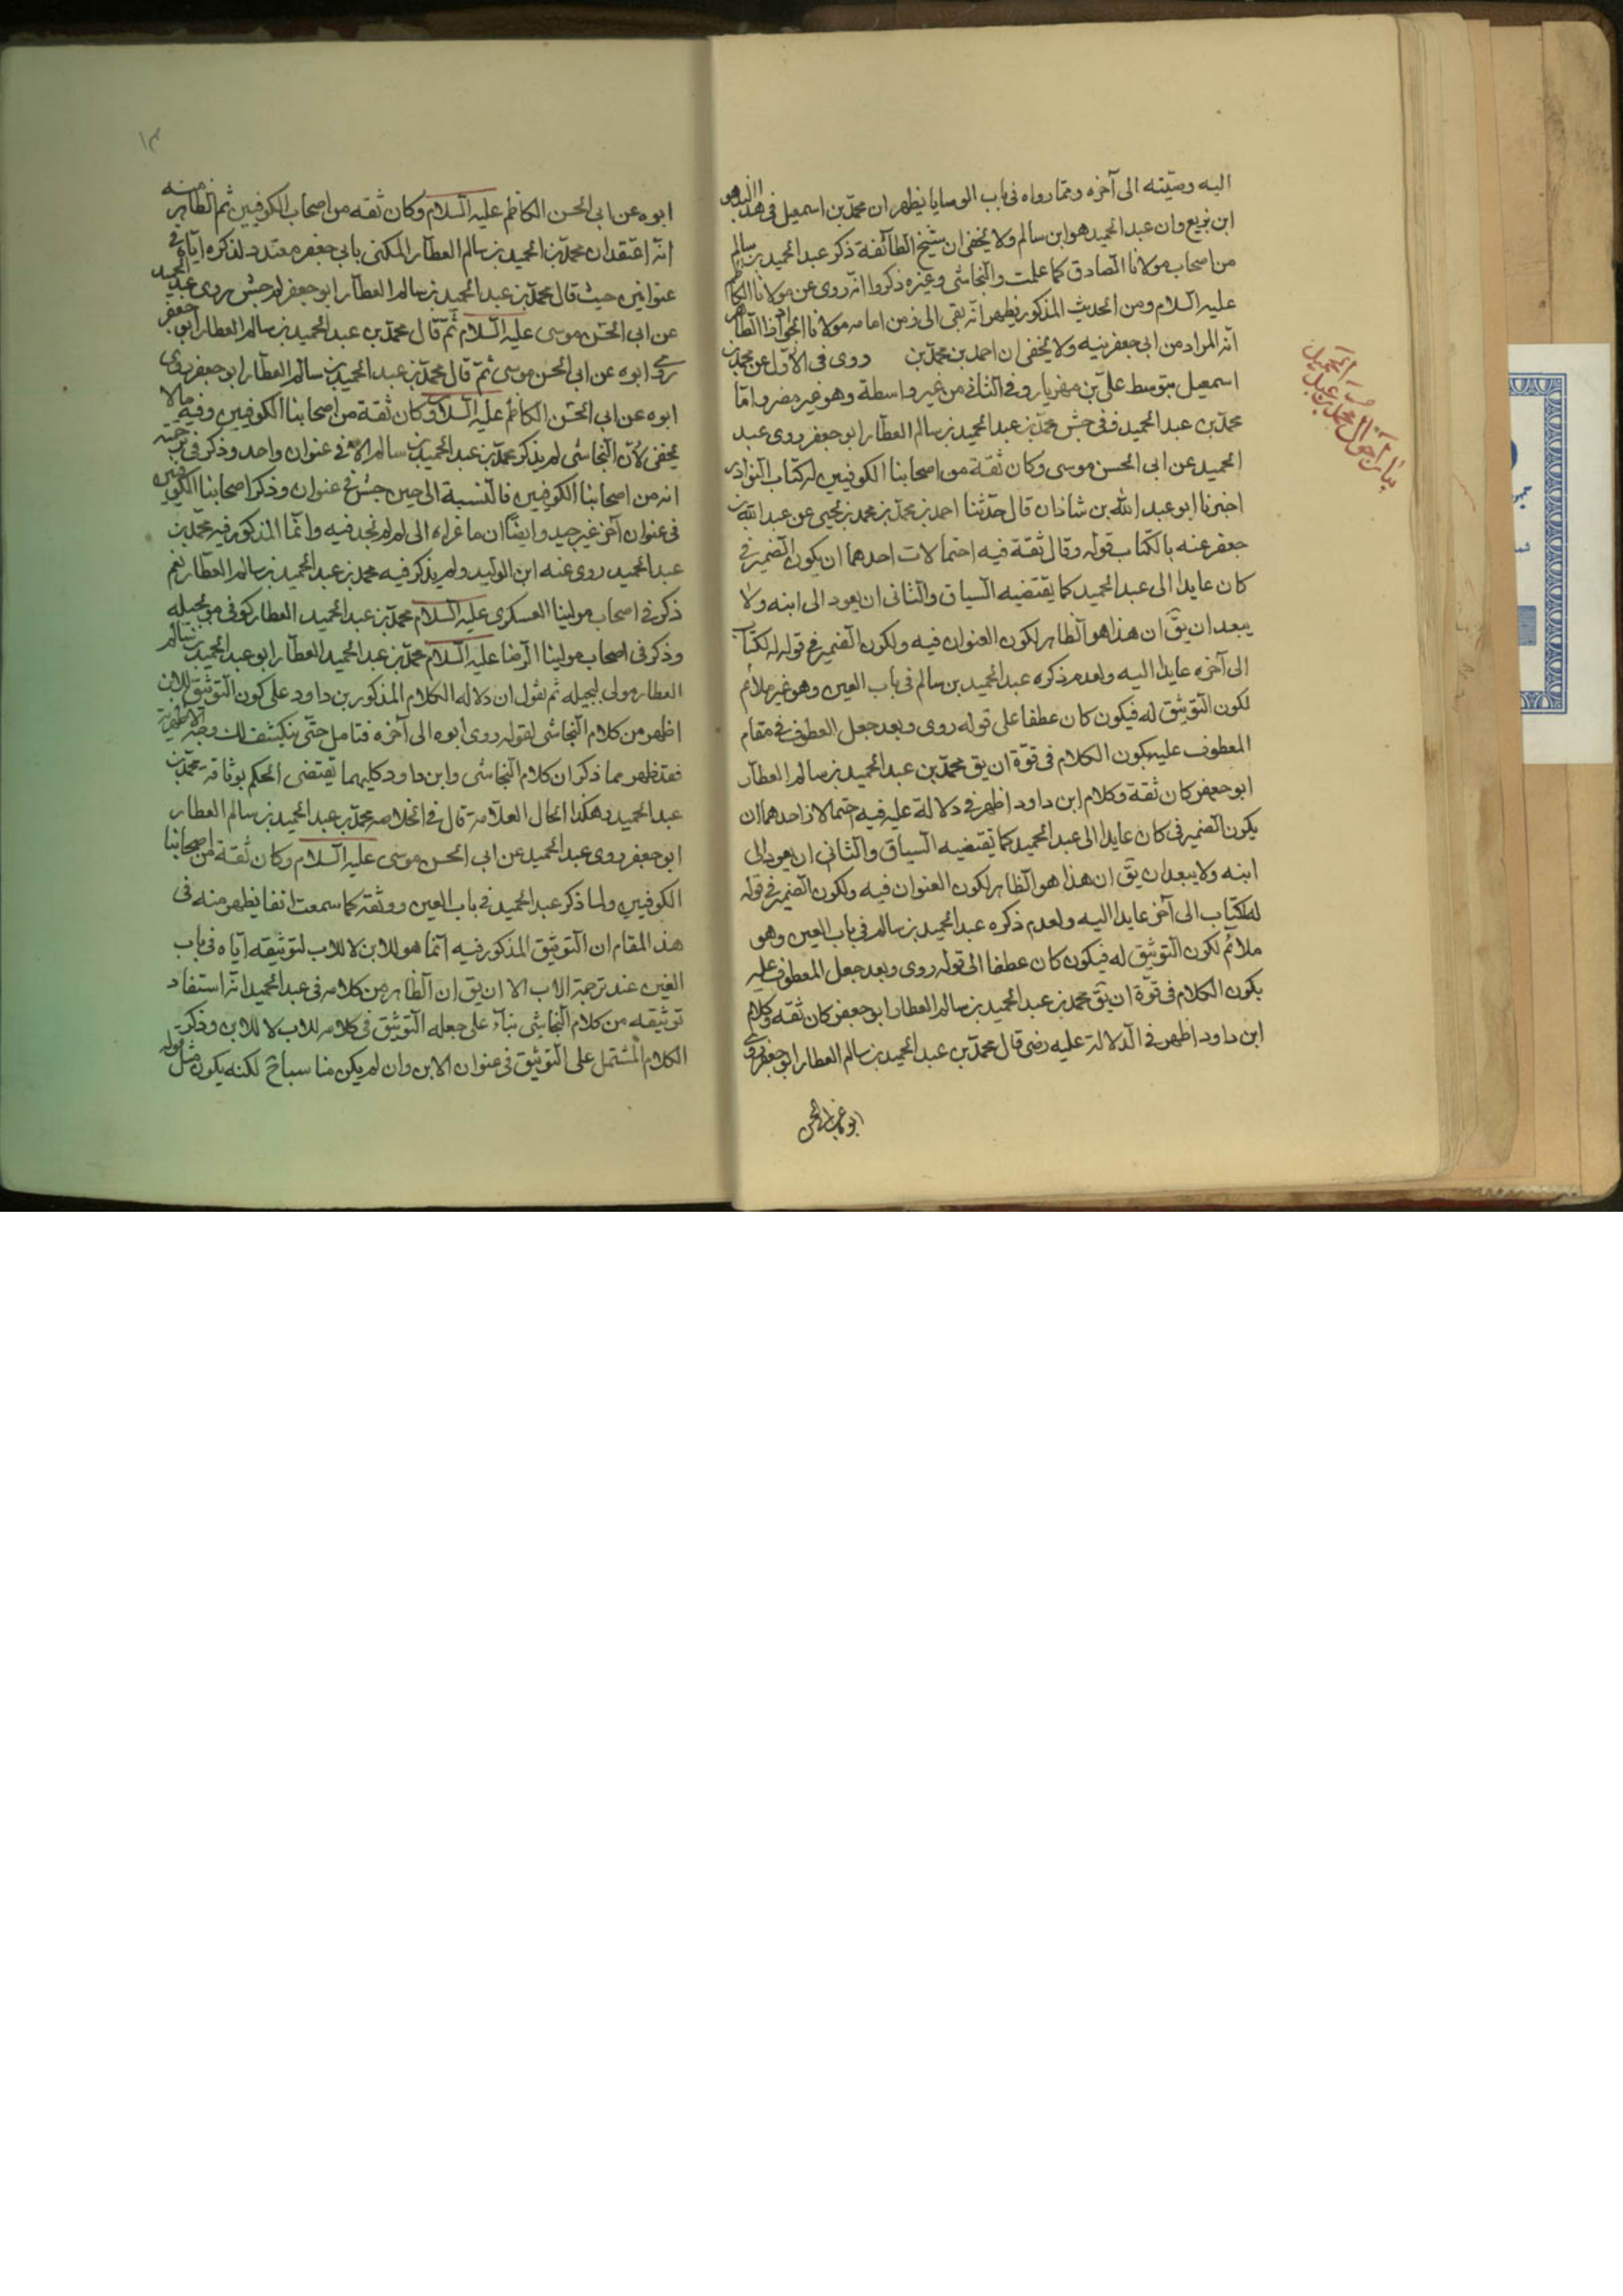 اليه وصيّته الى آخره وممّا رواه فى باب الوصايا يظهر ان محمّد بن اسمعيل فى هذا السند هو
ابن بزيع وان عبد الحميد هو ابن سالم ولا يخفى ان شيخ الطائفة ذكر عبد الحميد بن سالم
من اصحاب مولانا الصادق كما علمت والنجاشى وغيره ذكروا انه روى عن مولانا الكاظم
عليه السلام ومن الحديث المذكور يظهر انه بقى الى زمن امامه مولانا الجواد اذ الظاهر
انه المراد من ابى جعفر فيه ولا يخفى ان احمد بن محمد بن روى فى الاول عن محمد بن
اسمعيل بتوسط علىّ بن مهزيار وفى الثانى من غير واسطة وهو غير مضر وامّا
محمد بن عبد الحميد ففى جش محمد بن عبد الحميد بن سالم العطار ابو جعفر روى عبد
الحميد عن ابى الحسن موسى وكان ثقة من اصحابنا الكوفيين له كتاب النوادر
اخبرنا ابو عبد الله بن شاذان قال حدثنا احمد بن محمد بن يحيى عن عبد الله بن
جعفر عنه بالكتاب قوله وقال ثقة فيه احتمالات احدهما ان يكون الضمير فى
كان عايدا الى عبد الحميد كما يقتضيه السياق والثانى ان يعود الى ابنه ولا
يبعد ان يقّ ان هذا هو الظاهر لكون العنوان فيه ولكون الضمير فى قوله له كتاب
الى آخره عايدا اليه ولعدم ذكره عبد الحميد بن سالم فى باب العين وهو غير ملائم
لكون التوثيق له فيكون كان عطفا على قوله روى وبعد جعل العطوف فى مقام
المعطوف عليه يكون الكلام فى قوّة ان يق محمد بن عبد الحميد بن سالم العطار
ابو جعفر كان ثقة وكلام ابن داود اظهر فى دلالة عليه فيه احتمالان احدهما ان
يكون الضمير فى كان عايدا الى عبد الحميد كما يقتضيه السياق والثانى ان يعود الى
ابنه ولا يبعد ان يقّ ان هذا هو الظاهر لكون العنوان فيه ولكون الضمير فى قوله
له كتاب الى آخر عايدا اليه ولعدم ذكره عبد الحميد بن سالم فى باب العين وهو
ملائم لكون التوثيق له فيكون كان عطفا الى قوله روى وبعد جعل المعطوف عليه
يكون الكلام فى قوة ان يقّ محمد بن عبد الحميد بن سالم العطار ابو جعفر كان ثقه وكلام
ابن داود اظهر فى الدلالة عليه رضى قال محمد بن عبد الحميد بن سالم العطار ابو جعفر روى
ابوه عن ابى الحسن
بيان احوال محمد بن عبد الحميد
١٣
ابوه عن ابى الحسن الكاظم عليه السلام وكان ثقه من اصحاب الكوفيين ثم الظاهر منه
انه اعتقد ان محمد بن الحميد بن سالم العطار المكنى بابى جعفر متعدد لذكره اياه فى
عنوانين حيث قال محمد بن عبد الحميد بن سالم العطار ابو جعفر لم جش روى عبد الحميد
عن ابى الحسن موسى عليه السلام ثم قال محمد بن عبد الحميد بن سالم العطار ابو جعفر
روى ابوه عن ابى الحسن موسى ثم قال محمد بن عبد الحميد بن سالم العطار ابو جعفر روى
ابوه عن ابى الحسن الكاظم عليه السلام وكان ثقة من اصحابنا الكوفيين وفيه ما لا
يخفى لان النجاشى لم يذكر محمد بن عبد الحميد بن سالم الا فى عنوان واحد وذكر فى ترجمته
انه من اصحابنا الكوفيين فالنسبة الى حين جش فى عنوان وذكر اصحابنا الكوفيين
فى عنوان آخر غير جيد وايضًا ان ما غراه الى لم لم نجد فيه وانما المذكور فيه محمد بن
عبد الحميد روى عنه ابن الوليد ولم يذكر فيه محمد بن عبد الحميد بن سالم العطار نعم
ذكر فى اصحاب مولينا العسكرى عليه السلام محمد بن عبد الحميد العطار كوفى مولى بجيله
وذكر فى اصحاب مولينا الرضا عليه السلام محمد بن عبد الحميد العطار ابو عبد الحميد بن سالم
العطار مولى لبجيله ثم نقول ان دلاله الكلام المذكور بن داود على كون التوثيق للابن
اظهر من كلام النجاشى لقوله روى ابوه الى آخره فتامل حتّى ينكشف لك وجه الاظهرية
فقد ظهر مما ذكر ان كلام النجاشى وابن داود كليهما يقتضى الحكم بوثاقة محمد بن
عبد الحميد وهكذا الحال العلامة قال فى الخلاصه محمد بن عبد الحميد بن سالم العطار
ابو جعفر روى عبد الحميد عن ابى الحسن موسى عليه السلام وكان ثقة من اصحابنا
الكوفيين ولما ذكر عبد الحميد فى باب العين ووثقه كما سمعت انفا يظهر منه فى
هذ المقام ان التوثيق المذكور فيه انما هو للابن لا للاب لتوثيقه اياه فى باب
الغين عند ترجمة الاب الا ان يق ان الظاهر من كلامه فى عبد الحميد انه استفاد
توثيقه من كلام النجاشى بناء على جعله التوثيق فى كلامه للاب لا للابن وذكر
الكلام المشتمل على التوثيق فى عنوان الابن وان لم يكن مناسباح لكنه يكون مثل قوله